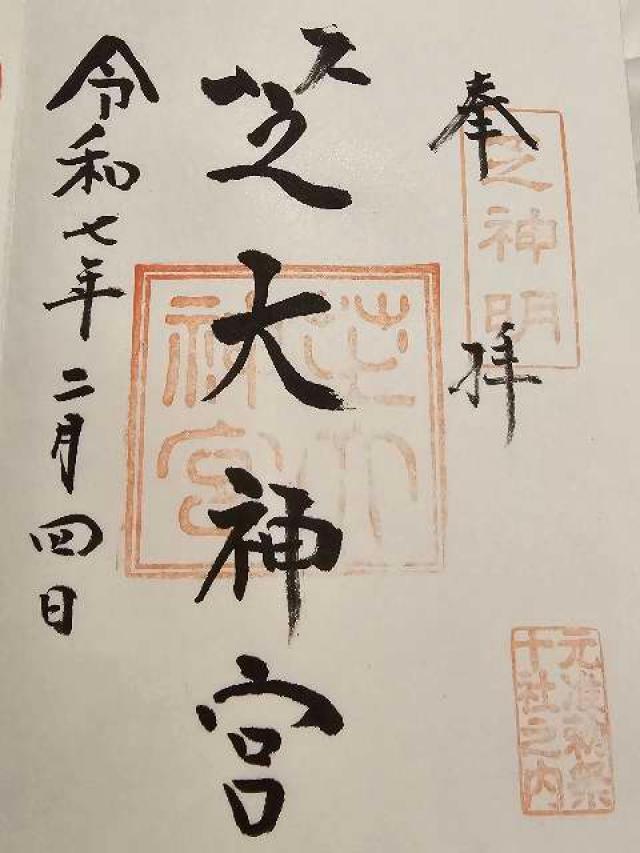 奉拝
芝神明
元准勅祭
十社之内
芝大神宮
芝大
神宮
令和七年二月四日